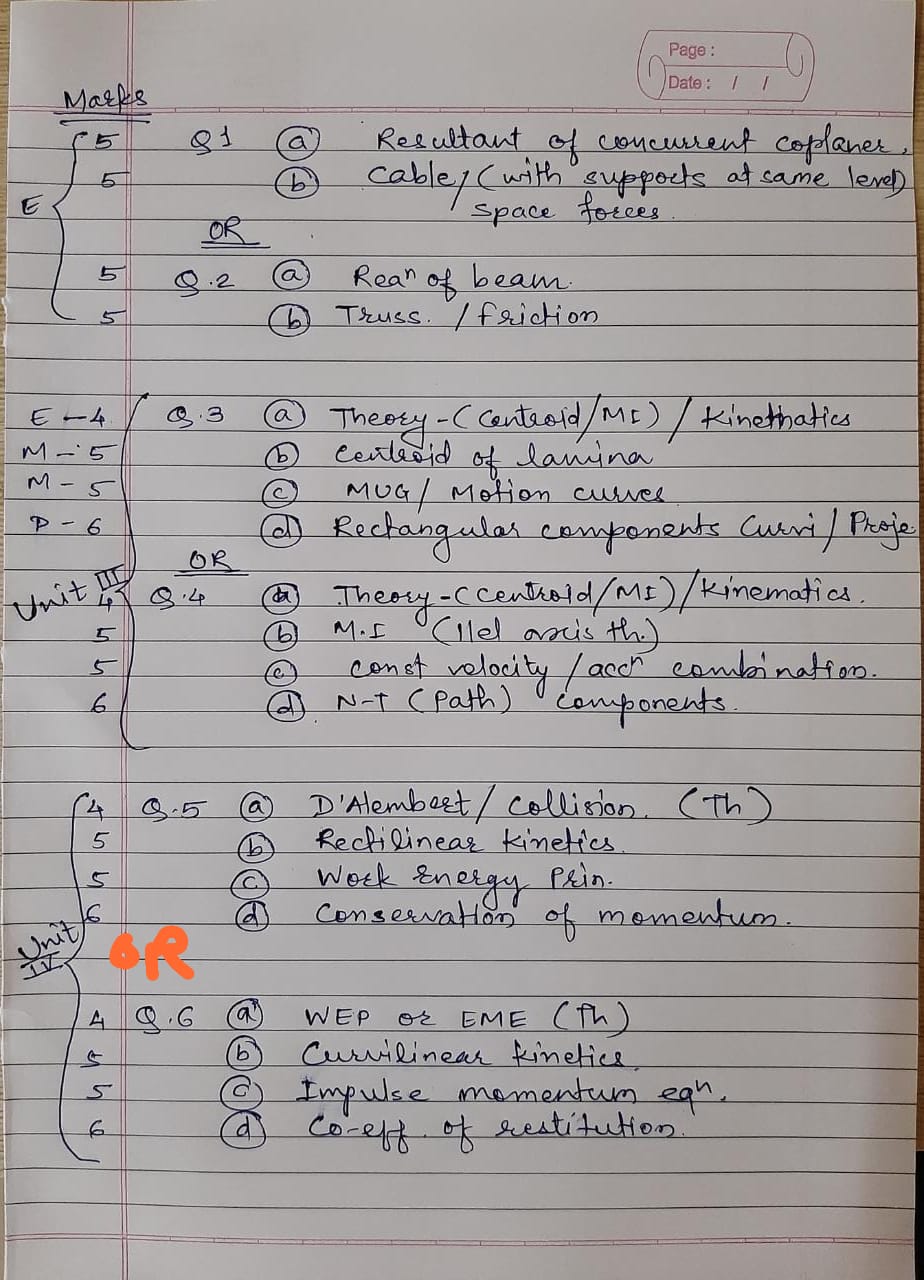 Page :
Date : / /
Marks
5 Q1 (a) Resultant of concurrent coplaner,
5 (b) Cable/(with supports at same level)
E
space forces.
OR
5 Q.2 (a) Reaⁿ of beam.
5 (b) Truss. / friction
E - 4 Q.3 (a) Theory - (Centroid/MI) / Kinethatics
M - 5 (b) Centroid of lamina
M - 5 (c) MUG / Motion curves
D - 6 (d) Rectangular components Curvi / Proje
OR
Unit III
4 Q.4 (a) Theory - (Centroid/MI)/Kinematics.
5 (b) M.I (llel axis th.)
5 (c) const velocity / accⁿ combination.
6 (d) N-T (Path) components.
4 Q.5 (a) D'Alembert / Collision. (Th)
5 (b) Rectilinear Kinetics.
5 (c) Work Energy Prin.
6 (d) Conservation of momentum.
Unit IV
OR
4 Q.6 (a) WEP or EME (Th)
5 (b) Curvilinear kinetics
5 (c) Impulse momentum eqⁿ.
6 (d) Co-eff. of restitution.